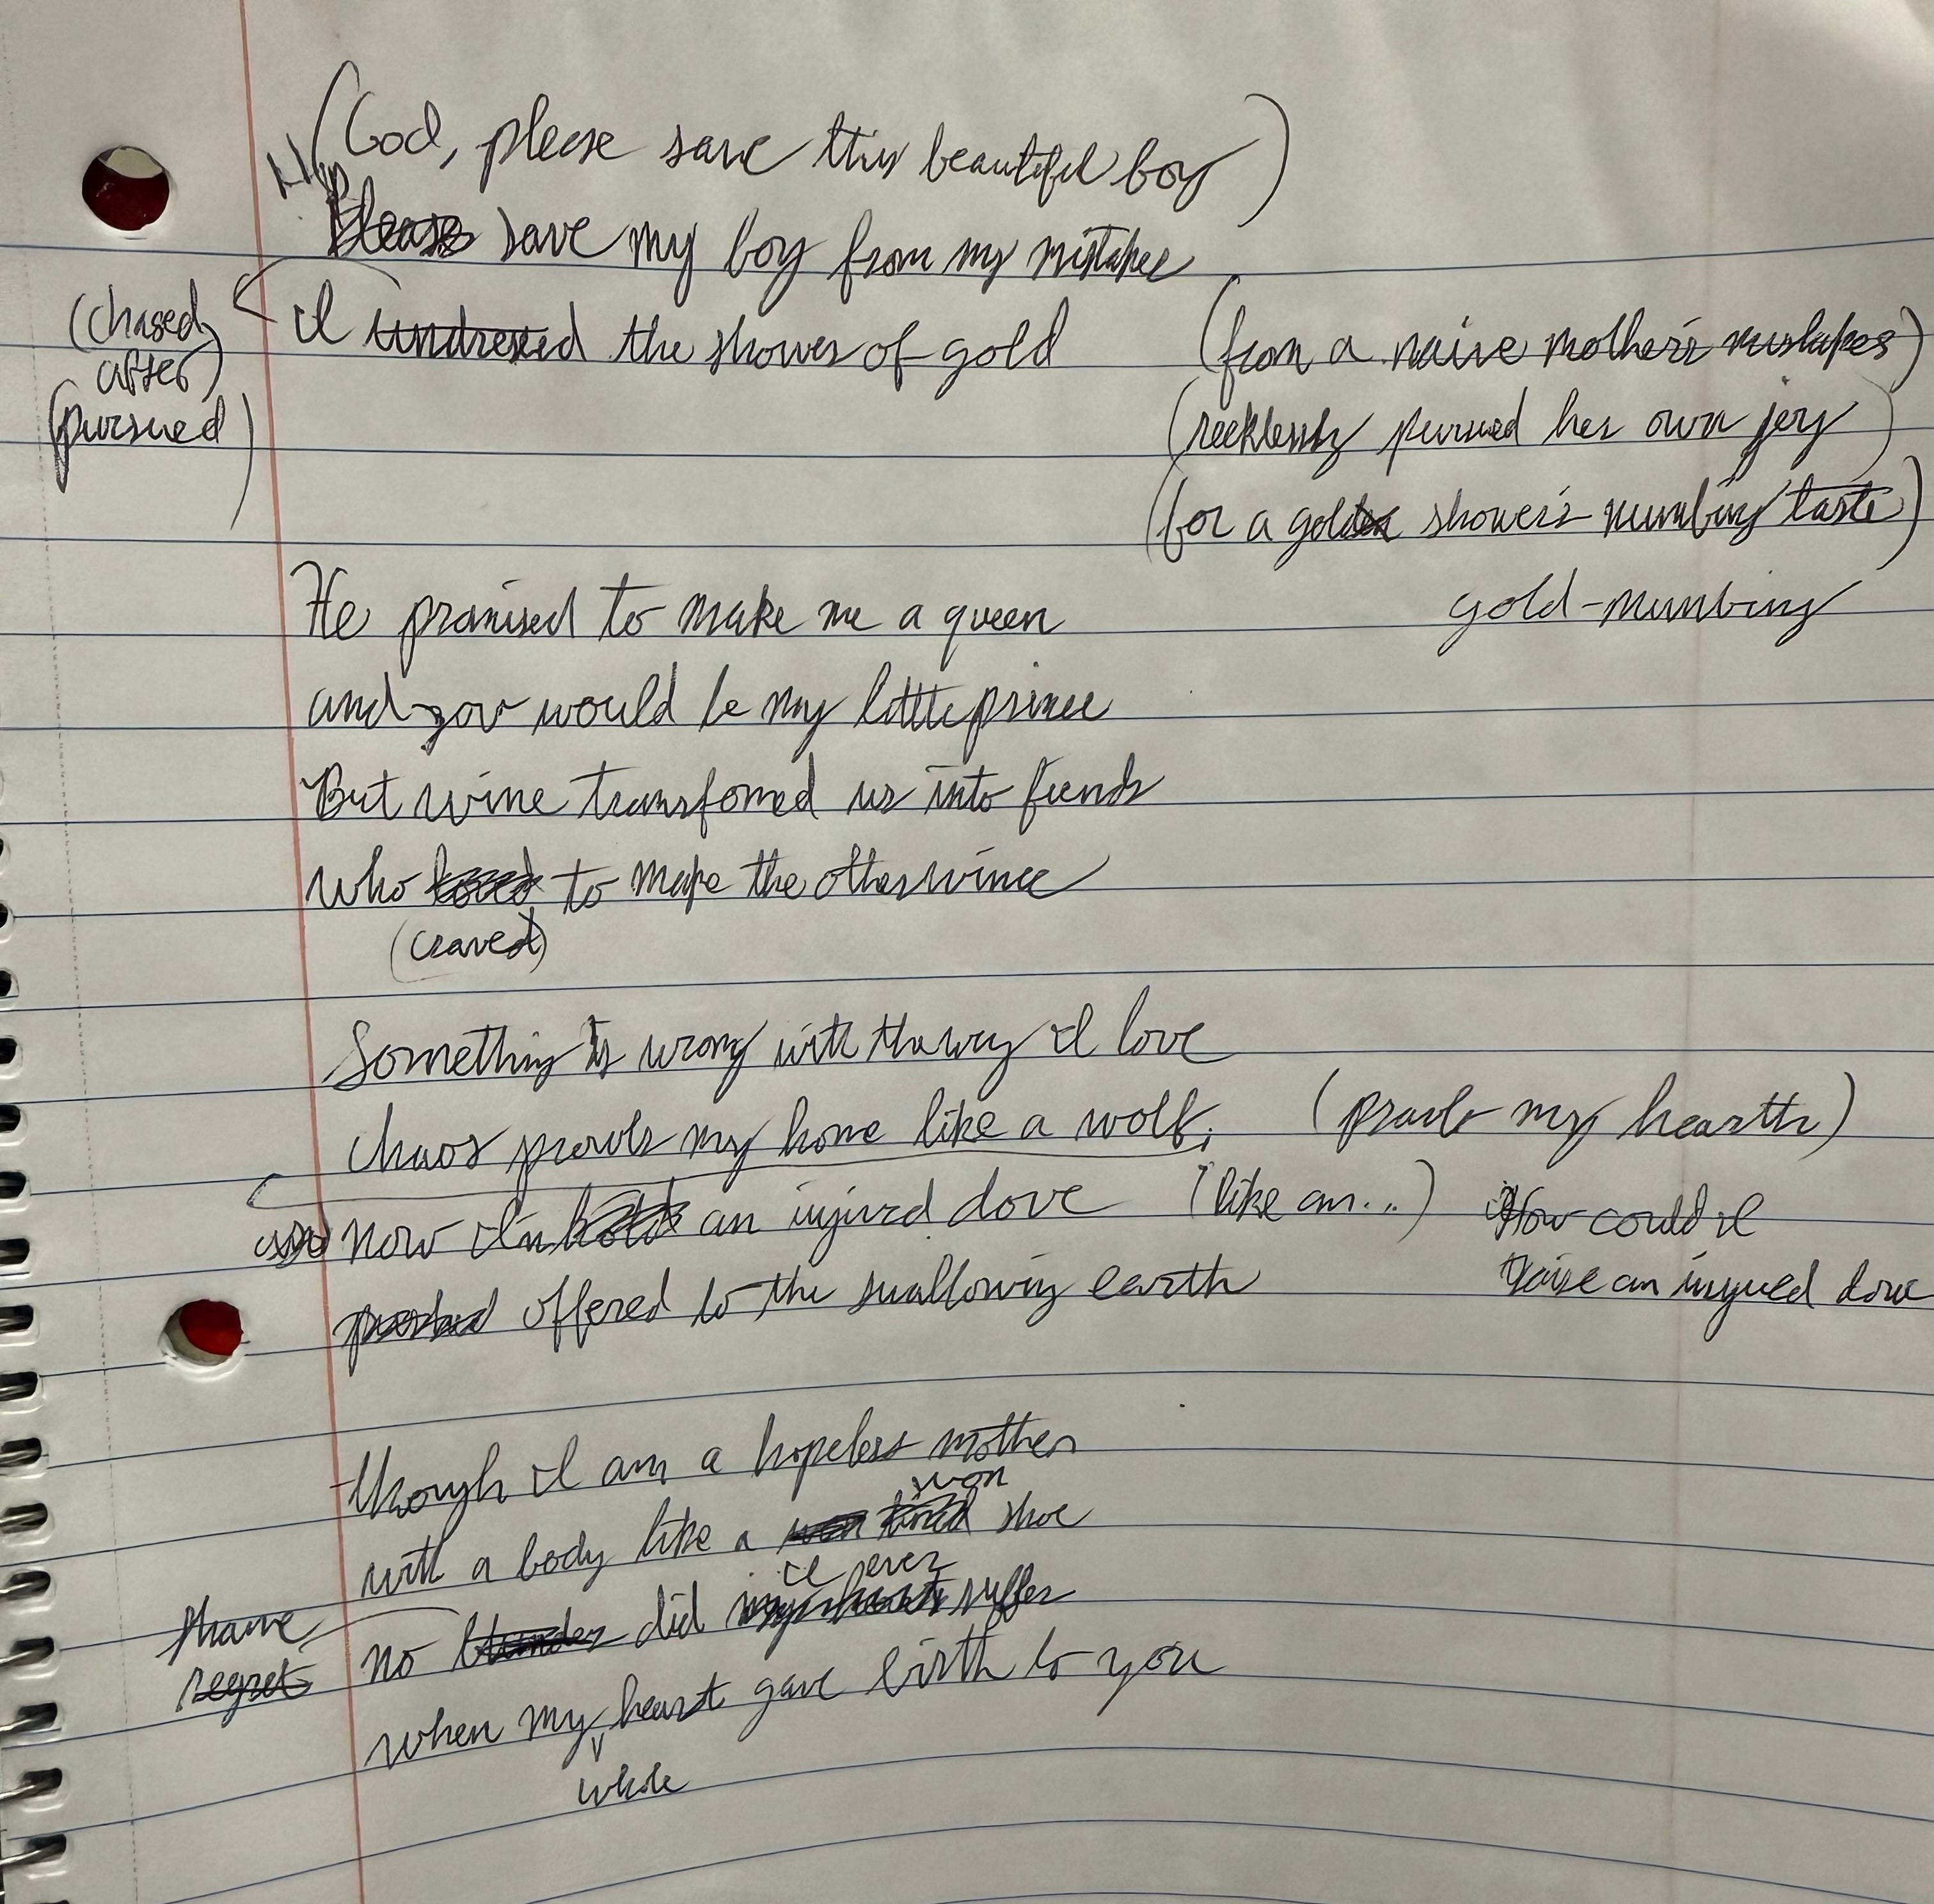 (God, please save this beautiful boy)
Please save my boy from my mistakes
I undressed the shower of gold
(chased
after)
(pursued)
(from a naive mother's mistakes)
(recklessly pursued her own joy)
(for a golden shower's numbing taste)
gold-numbing
He promised to make me a queen
and you would be my little prince
But wine transfomed us into fiends
who loved to make the other wince
(craved)
Something is wrong with the way I love
chaos prowls my home like a wolf, (prowls my hearth)
now I'm hold an injured dove (like an...)
offered to the swallowing earth
How could I
raise an injured dove
though I am a hopeless mother
with a body like a worn tired shoe
worn
no blunder did my heart suffer
I ever
shame
regret
when my heart gave birth to you
whole